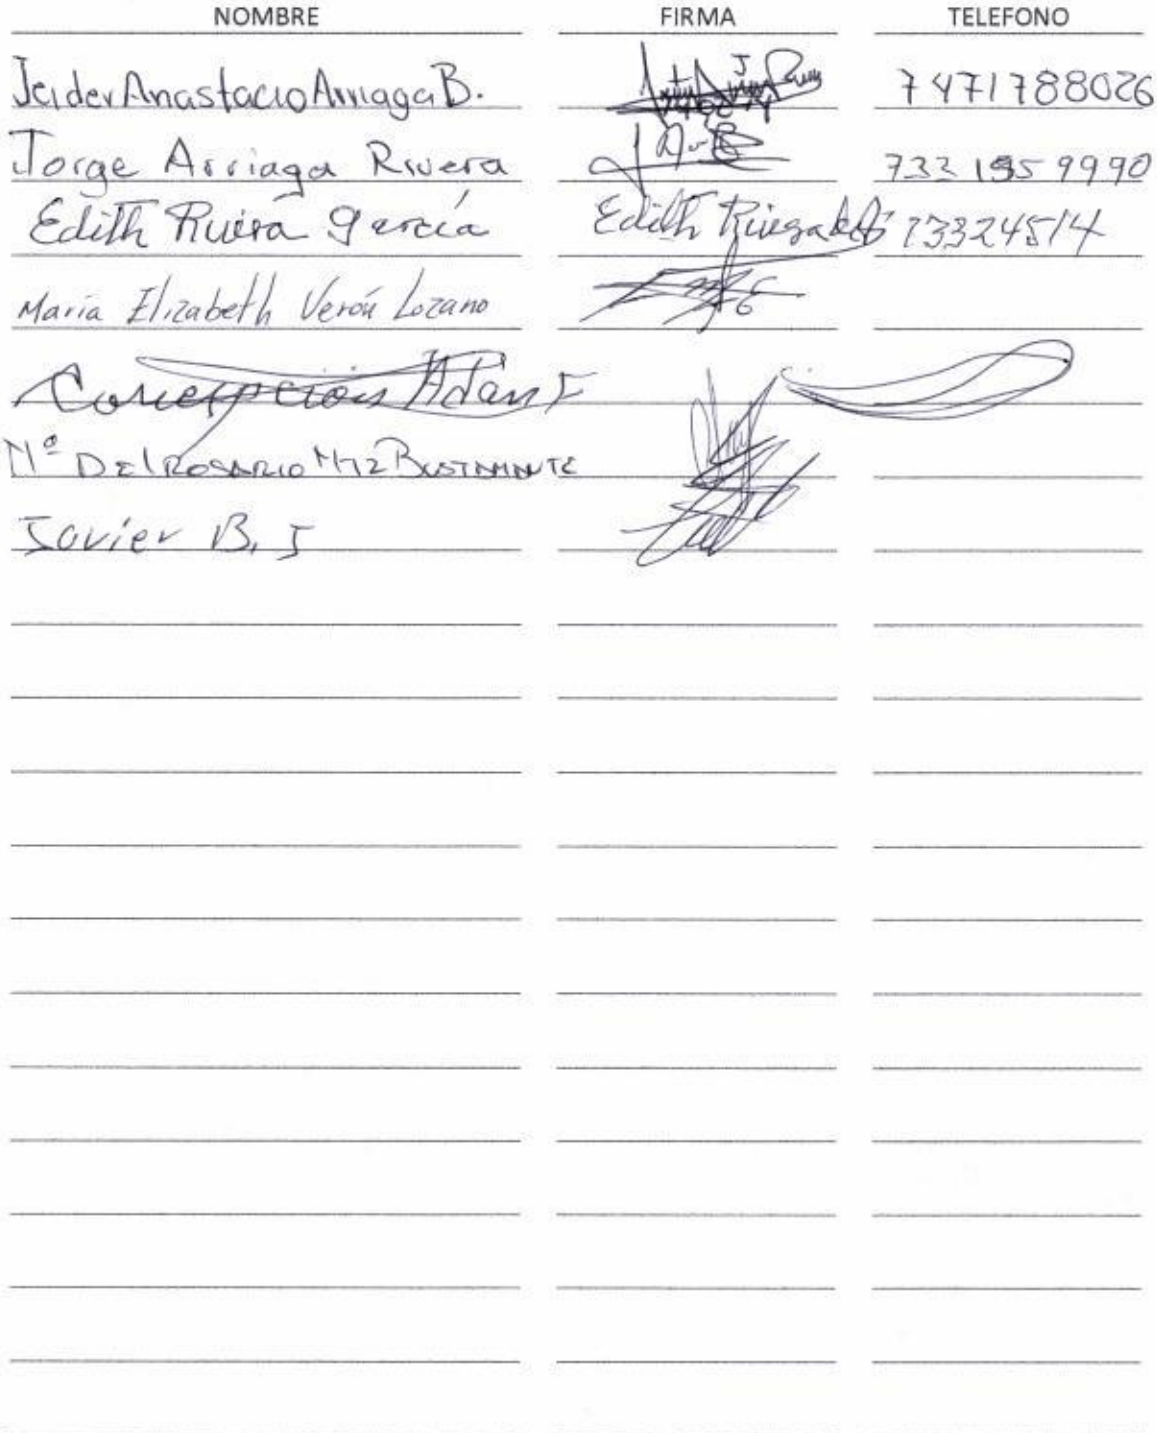 NOMBRE FIRMA TELEFONO
Jeider Anastacio Arriaga B. 7471788026
Jorge Arriaga Rivera 733 195 9990
Edith Rivera García Edith 73324514
María Elizabeth Verón Lozano
Concepción Adan
Mª Del ROSARIO MTZ BUSTAMANTE
Javier B. J